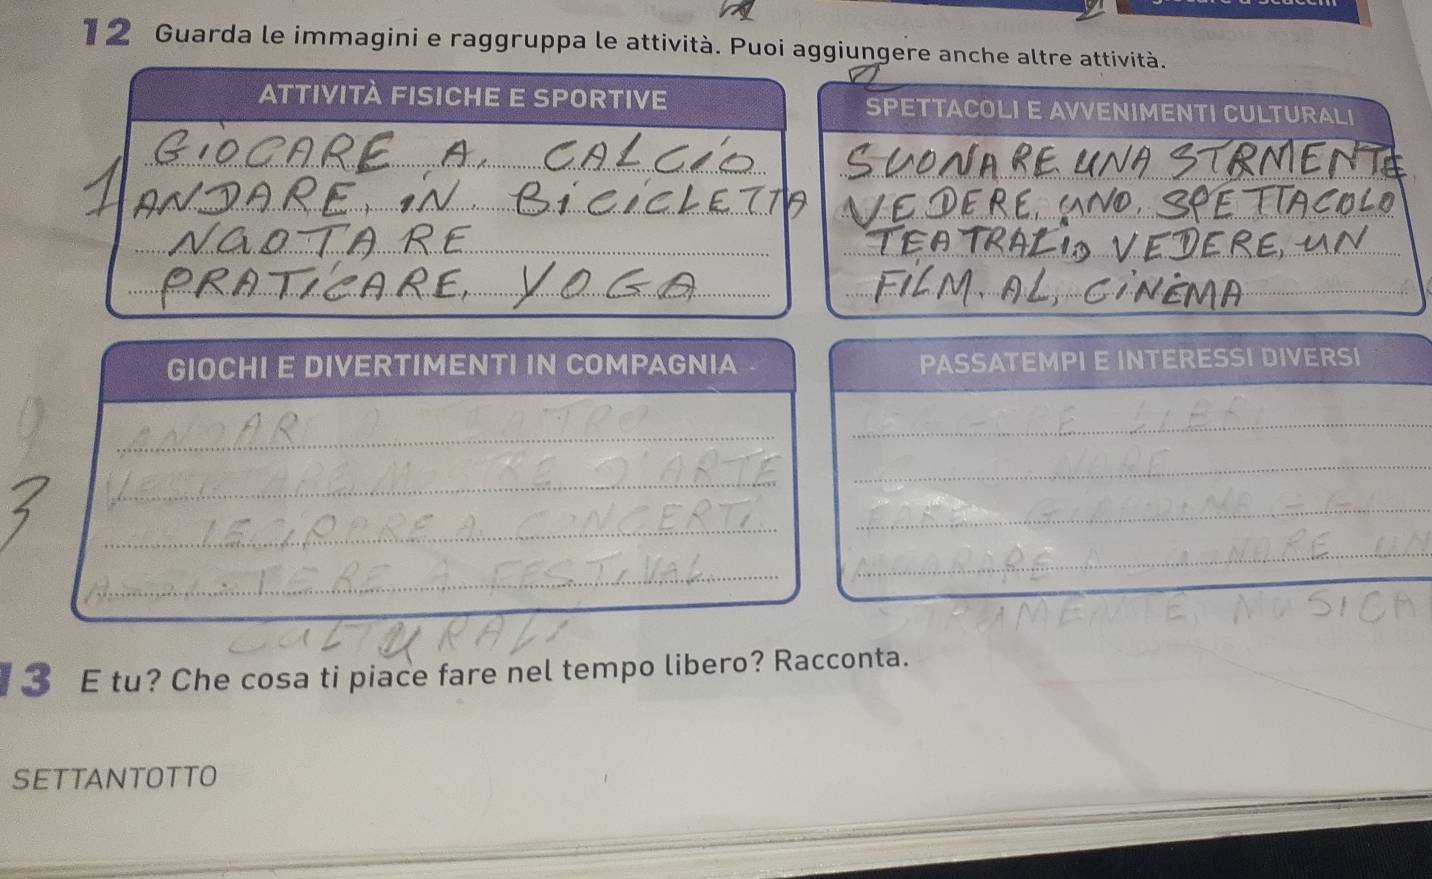 12 Guarda le immagini e raggruppa le attività. Puoi aggiungere anche altre attività.
ATTIVITÀ FISICHE E SPORTIVE
GIOCARE A, CALCIO
1 ANDARE, IN, BICICLETTA
NAOTARE
PRATICARE, YOGA
SPETTACOLI E AVVENIMENTI CULTURALI
SUONARE UNA STRMENTE
VEDERE, UNO, SPETTACOLO
TEATRALIO VEDERE, UN
FILM, AL, CINEMA
GIOCHI E DIVERTIMENTI IN COMPAGNIA
TEATRO
3
D'ARTE
A. CONCERTI
A FESTIVAL
CULTURALI
PASSATEMPI E INTERESSI DIVERSI
FARE
UN
MUSICA
13 E tu? Che cosa ti piace fare nel tempo libero? Racconta.
SETTANTOTTO